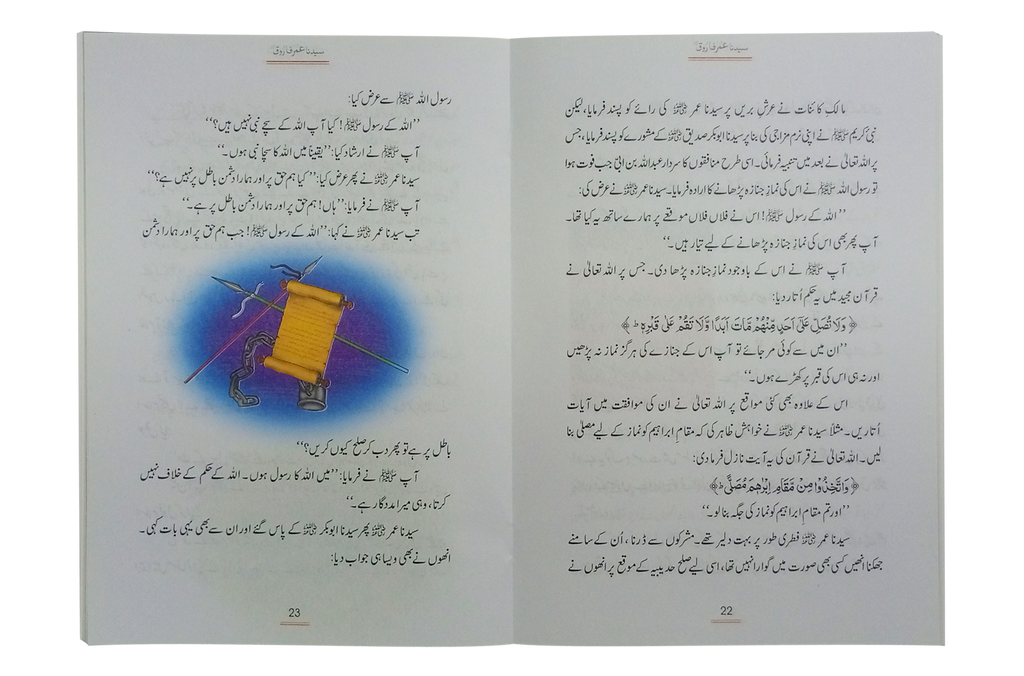 سیدنا عمر فاروق
مالکِ کائنات نے عرشِ بریں پر سیدنا عمر رضی اللہ عنہ کی رائے کو پسند فرمایا، لیکن
نبی کریم ﷺ نے اپنی نرم مزاجی کی بنا پر سیدنا ابوبکر صدیق رضی اللہ عنہ کے مشورے کو پسند فرمایا، جس
پر اللہ تعالیٰ نے بعد میں تنبیہ فرمائی۔ اسی طرح منافقوں کا سردار عبداللہ بن ابیّ جب فوت ہوا
تو رسول اللہ ﷺ نے اس کی نمازِ جنازہ پڑھانے کا ارادہ فرمایا۔ سیدنا عمر رضی اللہ عنہ نے عرض کی:
’’اللہ کے رسول ﷺ! اس نے فلاں فلاں موقعے پر ہمارے ساتھ یہ کیا تھا۔
آپ پھر بھی اس کی نمازِ جنازہ پڑھانے کے لیے تیار ہیں۔‘‘
آپ ﷺ نے اس کے باوجود نمازِ جنازہ پڑھا دی۔ جس پر اللہ تعالیٰ نے
قرآن مجید میں یہ حکم اُتار دیا:
﴿ وَلَا تُصَلِّ عَلٰٓى اَحَدٍ مِّنْهُمْ مَّاتَ اَبَدًا وَّلَا تَقُمْ عَلٰى قَبْرِهٖ ؕ ﴾
’’ان میں سے کوئی مر جائے تو آپ اس کے جنازے کی ہرگز نماز نہ پڑھیں
اور نہ ہی اس کی قبر پر کھڑے ہوں۔‘‘
اس کے علاوہ بھی کئی مواقع پر اللہ تعالیٰ نے ان کی موافقت میں آیات
اُتاریں۔ مثلاً سیدنا عمر رضی اللہ عنہ نے خواہش ظاہر کی کہ مقامِ ابراہیم کو نماز کے لیے مصلّٰی بنا
لیں۔ اللہ تعالیٰ نے قرآن کی یہ آیت نازل فرما دی:
﴿ وَاتَّخِذُوْا مِنْ مَّقَامِ اِبْرٰهٖمَ مُصَلًّى ؕ ﴾
’’اور تم مقامِ ابراہیم کو نماز کی جگہ بنا لو۔‘‘
سیدنا عمر رضی اللہ عنہ فطری طور پر بہت دلیر تھے۔ مشرکوں سے ڈرنا، اُن کے سامنے
جھکنا انھیں کسی بھی صورت میں گوارا نہیں تھا، اسی لیے صلح حدیبیہ کے موقع پر انھوں نے
22
سیدنا عمر فاروق
رسول اللہ ﷺ سے عرض کیا:
’’اللہ کے رسول ﷺ! کیا آپ اللہ کے سچے نبی نہیں ہیں؟‘‘
آپ ﷺ نے ارشاد کیا: ’’یقیناً میں اللہ کا سچا نبی ہوں۔‘‘
سیدنا عمر رضی اللہ عنہ نے پھر عرض کیا: ’’کیا ہم حق پر اور ہمارا دشمن باطل پر نہیں ہے؟‘‘
آپ ﷺ نے فرمایا: ’’ہاں! ہم حق پر اور ہمارا دشمن باطل پر ہے۔‘‘
تب سیدنا عمر رضی اللہ عنہ نے کہا: ’’اللہ کے رسول ﷺ! جب ہم حق پر اور ہمارا دشمن
باطل پر ہے تو پھر دب کر صلح کیوں کریں؟‘‘
آپ ﷺ نے فرمایا: ’’میں اللہ کا رسول ہوں۔ اللہ کے حکم کے خلاف نہیں
کرتا، وہی میرا مددگار ہے۔‘‘
سیدنا عمر رضی اللہ عنہ پھر سیدنا ابوبکر رضی اللہ عنہ کے پاس گئے اور ان سے بھی یہی بات کہی۔
انھوں نے بھی ویسا ہی جواب دیا:
23